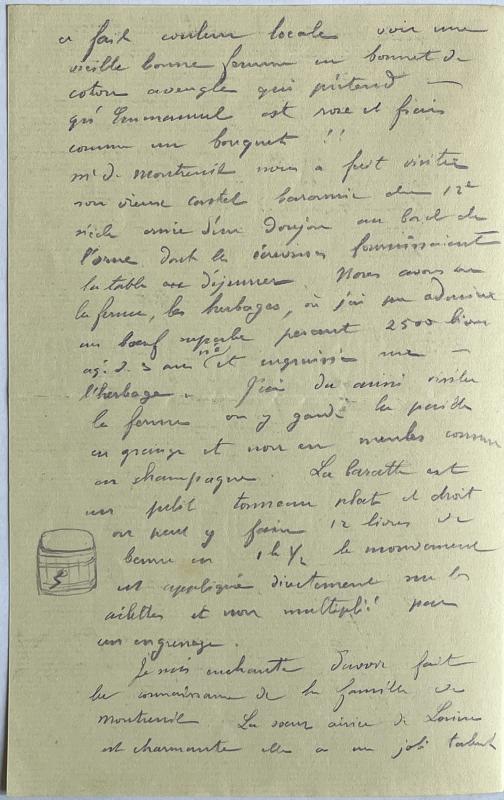 a fait couleur locale voir une
vieille bonne femme en bonnet de
coton aveugle qui prétend —
qu'Emmanuel est rose et frais
comme un bouquet !!
Mr de Montreuil nous a fait visiter
son vieux castel baronnie du 12e
siècle ornée d'un donjon au bord de
l'orne dont les écrevisses fournissaient
la table au déjeuner. Nous avons vu
la ferme, les herbages, où j'ai pu admirer
un bœuf superbe pesant 2500 livres
agé de 3 ans né et engraissé sur —
l'herbage. J'ai du aussi visiter
la ferme on y garde la paille
en grange et non en meules comme
en champagne. La baratte est
un petit tonneau plat et droit
on peut y faire 12 livres de
beurre en 1h 1/2 le mouvement
est appliqué directement sur les
ailettes et non multiplié par
un engrenage.
Je suis enchantée d'avoir fait
la connaissance de la famille de
Montreuil La sœur ainée de Louise
est charmante elle a un joli talent